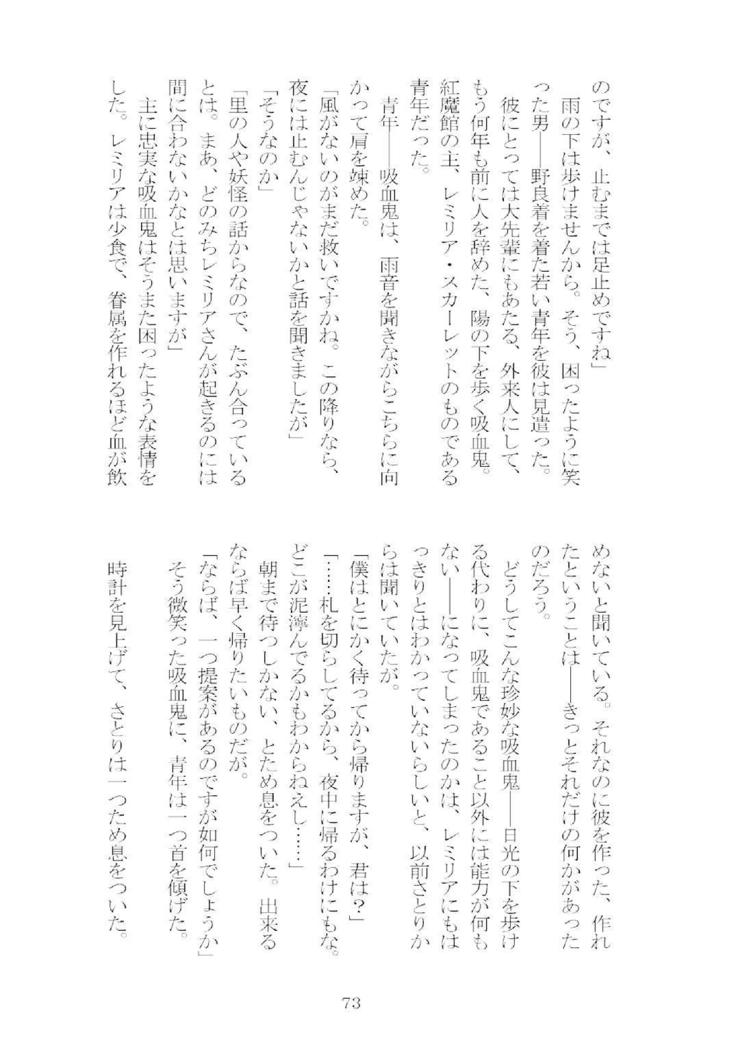 のですが、止むまでは足止めですね」
　雨の下は歩けませんから。そう、困ったように笑
った男――野良着を着た若い青年を彼は見遣った。
　彼にとっては大先輩にもあたる、外来人にして、
もう何年も前に人を辞めた、陽の下を歩く吸血鬼。
紅魔館の主、レミリア・スカーレットのものである
青年だった。
　青年――吸血鬼は、雨音を聞きながらこちらに向
かって肩を竦めた。
「風がないのがまだ救いですかね。この降りなら、
夜には止むんじゃないかと話を聞きましたが」
「そうなのか」
「里の人や妖怪の話からなので、たぶん合っている
とは。まあ、どのみちレミリアさんが起きるのには
間に合わないかなとは思いますが」
　主に忠実な吸血鬼はそうまた困ったような表情を
した。レミリアは少食で、眷属を作れるほど血が飲
めないと聞いている。それなのに彼を作った、作れ
たということは――きっとそれだけの何かがあった
のだろう。
　どうしてこんな珍妙な吸血鬼――日光の下を歩け
る代わりに、吸血鬼であること以外には能力が何も
ない――になってしまったのかは、レミリアにもは
っきりとはわかっていないらしいと、以前さとりか
らは聞いていたが。
「僕はとにかく待ってから帰りますが、君は？」
「……札を切らしてるから、夜中に帰るわけにもな。
どこが泥濘んでるかもわからねえし……」
　朝まで待つしかない、とため息をついた。出来る
ならば早く帰りたいものだが。
「ならば、一つ提案があるのですが如何でしょうか」
　そう微笑った吸血鬼に、青年は一つ首を傾げた。
　時計を見上げて、さとりは一つため息をついた。
73